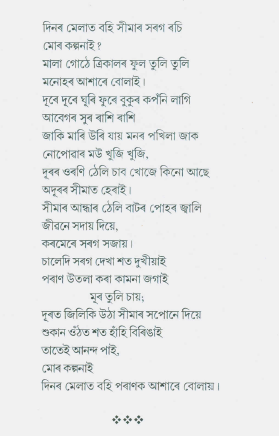 দিনৰ মেলাত বহি সীমাৰ সৰগ ৰচি
মোৰ কল্পনাই?
মালা গোঠে ত্ৰিকালৰ ফুল তুলি তুলি
মনোহৰ আশাৰে বোলাই।
দূৰে দূৰে ঘূৰি ফুৰে বুকুৰ কপঁনি লাগি
আবেগৰ সুৰ ৰাশি ৰাশি
জাকি মাৰি উৰি যায় মনৰ পখিলা জাক
নোপোৱাৰ মউ খুজি খুজি,
দূৰৰ ওৰণি ঠেলি চাব খোজে কিনো আছে
অদূৰৰ সীমাত হেৰাই।
সীমাৰ আন্ধাৰ ঠেলি বাটৰ পোহৰ জ্বালি
জীৱনে সদায় দিয়ে,
কৰমেৰে সৰগ সজায়।
চালেদি সৰগ দেখা শত দুখীয়াই
পৰাণ উতলা কৰা কামনা জগাই
মূৰ তুলি চায়;
দূৰত জিলিকি উঠা সীমাৰ সপোনে দিয়ে
শুকান ওঁঠত শত হাঁহি বিৰিঙাই
তাতেই আনন্দ পাই,
মোৰ কল্পনাই
দিনৰ মেলাত বহি পৰাণক আশাৰে বোলায়।